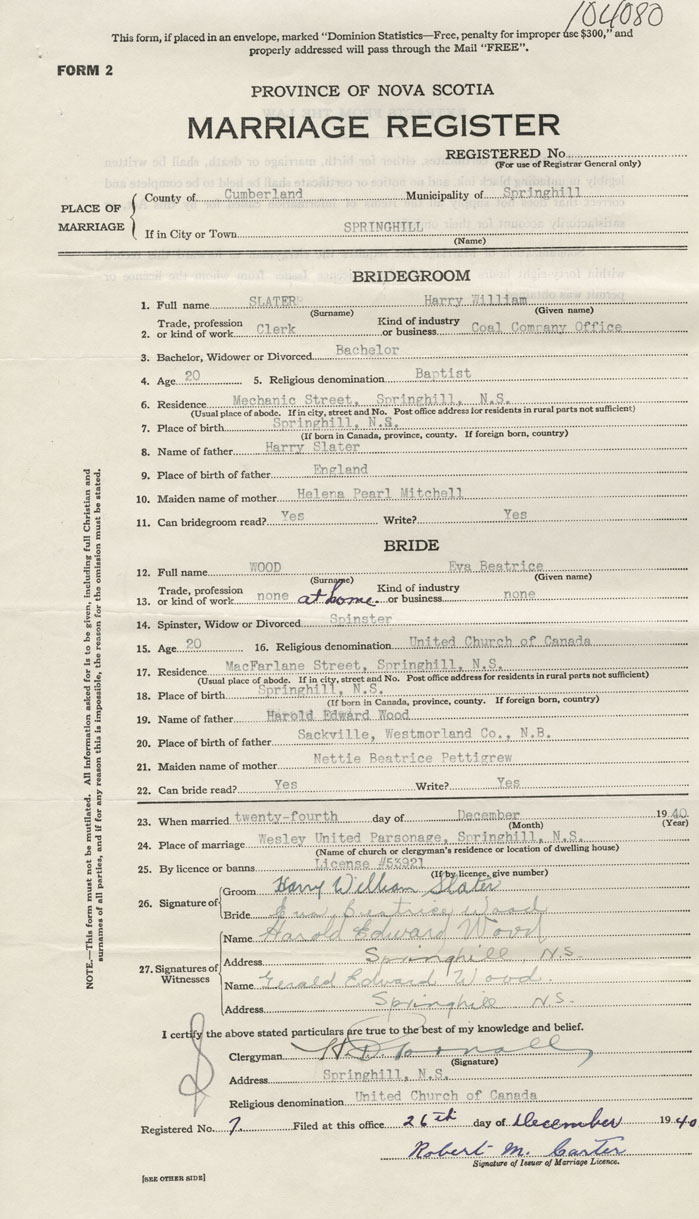 104080
This form, if placed in an envelope, marked "Dominion Statistics—Free, penalty for improper use $300," and
properly addressed will pass through the Mail "FREE".
FORM 2
PROVINCE OF NOVA SCOTIA
MARRIAGE REGISTER
REGISTERED No.
(For use of Registrar General only)
PLACE OF MARRIAGE
County of Cumberland Municipality of Springhill
If in City or Town SPRINGHILL
(Name)
BRIDEGROOM
1. Full name SLATER Harry William
(Surname) (Given name)
2. Trade, profession or kind of work Clerk Kind of industry or business Coal Company Office
3. Bachelor, Widower or Divorced Bachelor
4. Age 20 5. Religious denomination Baptist
6. Residence Mechanic Street, Springhill, N.S.
(Usual place of abode. If in city, street and No. Post office address for residents in rural parts not sufficient)
7. Place of birth Springhill, N.S.
(If born in Canada, province, county. If foreign born, country)
8. Name of father Harry Slater
9. Place of birth of father England
10. Maiden name of mother Helena Pearl Mitchell
11. Can bridegroom read? Yes Write? Yes
BRIDE
12. Full name WOOD Eva Beatrice
(Surname) (Given name)
13. Trade, profession or kind of work none at home Kind of industry or business none
14. Spinster, Widow or Divorced Spinster
15. Age 20 16. Religious denomination United Church of Canada
17. Residence MacFarlane Street, Springhill, N.S.
(Usual place of abode. If in city, street and No. Post office address for residents in rural parts not sufficient)
18. Place of birth Springhill, N.S.
(If born in Canada, province, county. If foreign born, country)
19. Name of father Harold Edward Wood
20. Place of birth of father Sackville, Westmorland Co., N.B.
21. Maiden name of mother Nettie Beatrice Pettigrew
22. Can bride read? Yes Write? Yes
23. When married twenty-fourth day of December 1940
(Month) (Year)
24. Place of marriage Wesley United Parsonage, Springhill, N.S.
(Name of church or clergyman's residence or location of dwelling house)
25. By licence or banns License #53921
(If by licence, give number)
26. Signature of
Groom Harry William Slater
Bride Eva Beatrice Wood
27. Signatures of Witnesses
Name Harold Edward Wood
Address Springhill N.S.
Name Gerald Edward Wood
Address Springhill N.S.
I certify the above stated particulars are true to the best of my knowledge and belief.
Clergyman
(Signature)
Address Springhill, N.S.
Religious denomination United Church of Canada
Registered No. 7. Filed at this office 26th day of December 1940
Robert M. Carter
Signature of Issuer of Marriage Licence.
[SEE OTHER SIDE]
NOTE.—This form must not be mutilated. All information asked for is to be given, including full Christian and
surnames of all parties, and if for any reason this is impossible, the reason for the omission must be stated.